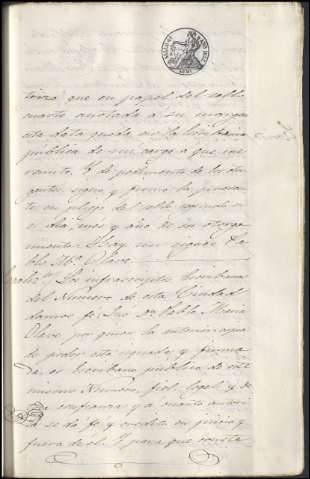 que en papel del sello
cuarto anotada a su margen
esta data queda en la Escribania
pública de mi cargo a que me
remito. Y de pedimento de los otor
gantes, signo y firmo la presen
te en pliego del sello
el dia, mes y año de su otorga
miento. Hay un signo Pa
blo Mª. Olave
Los infrascriptos Escribanos
del Número de esta Ciudad
damos fé: Que Dn. Pablo Maria
Olave por quien la anterior copia
de poder está signada y firma
da, es Escribano público de este
mismo Número, fiel, legal y de
confianza y a cuanto autori
za se da fé y credito en juicio y
fuera de él. Y para que conste